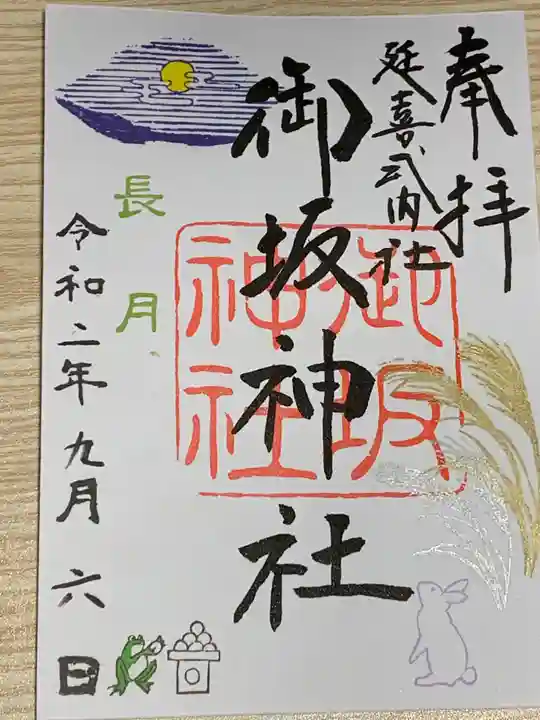 奉拝
延喜式内社
御坂神社
御坂
神社
長月
令和二年九月六日